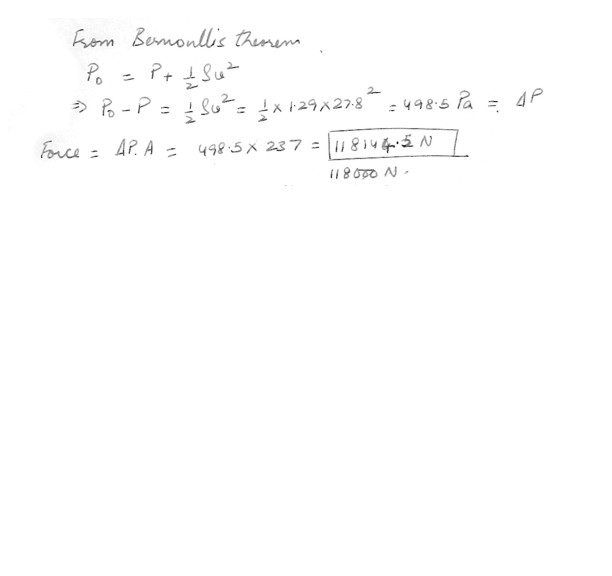 From Bernoullis theorem.
P₀ = P + ½ ρv²
⇒ P₀ - P = ½ ρv² = ½ × 1.29 × 27.8² = 498.5 Pa = ΔP
Force = ΔP.A = 498.5 × 237 = 118144.5 N
118000 N.